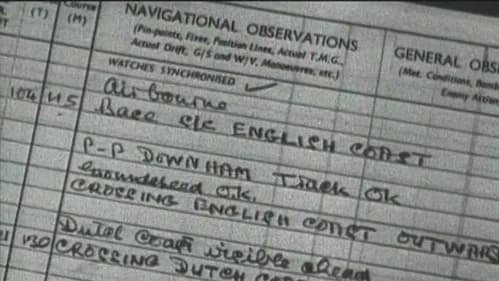 (T)
Course
(M)
NAVIGATIONAL OBSERVATIONS
(Pin-points, Fixes, Position Lines, Actual T.M.G.,
Actual Drift, G/S and W/V, Manoeuvres, etc.)
GENERAL OBS
(Met. Conditions,
Enemy
WATCHES SYNCHRONISED ✓
airbourne
104 115 Base c/c ENGLISH COAST
P-P DOWNHAM Track OK
Groundspeed O.K.
CROSSING ENGLISH COAST OUTWARS
Dutch Coast visible ahead
130 CROSSING DUTCH